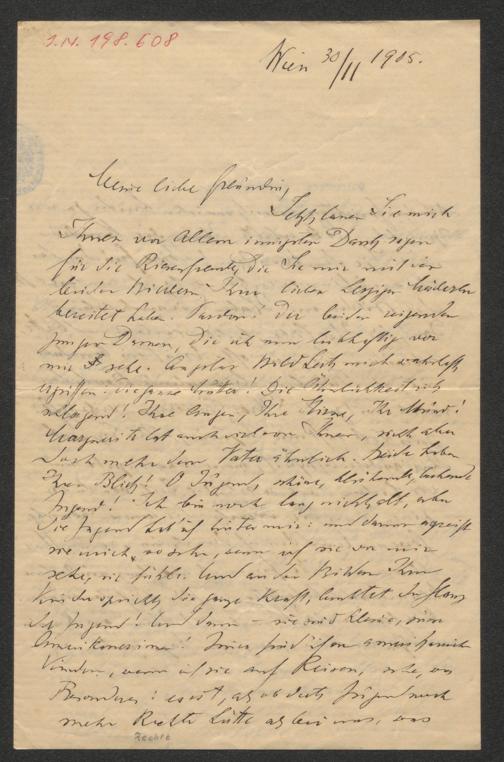 I.N. 198.608
Wien 30/11 1905.
Meine liebe Freundin,
Jetzt lassen Sie mich
Ihnen vor Allem innigsten Dank sagen
für die Riesenfreude, die Sie mir mit den
beiden Bildern Ihrer lieben
bereitet haben. Pardon: der beiden reizenden
jungen Damen, die ich nun leibhaftig vor
mir sehe. Bild hat mich wahrhaft
ergriffen. Die ganze Mutter! Die Ähnlichkeit ist
schlagend! Ihre Augen, Ihre Stirne, Ihr Mund!
Marguerite hat auch viel von Ihnen, sieht aber
doch mehr dem Vater ähnlich. Beide haben
Ihren Blick! O Jugend, schöne, lachende
Jugend! Ich bin noch lang nicht alt, aber
die Jugend hab' ich hinter mir: und darum ergreift
sie mich so sehr, wenn ich sie vor mir
sehe, sie fühle. Und aus den Bildern Ihrer
Kinder spricht die ganze Kraft, leuchtet der Glanz
der Jugend! Und dann – sie sind kleine
Amerikanerinnen! Immer find' ich an amerikanischen
Kindern, wenn ich sie auf Reisen sehe, was
Besonderes: es ist, als ob dort Jugend noch
mehr Rechte hätte als bei uns, was
Rechte